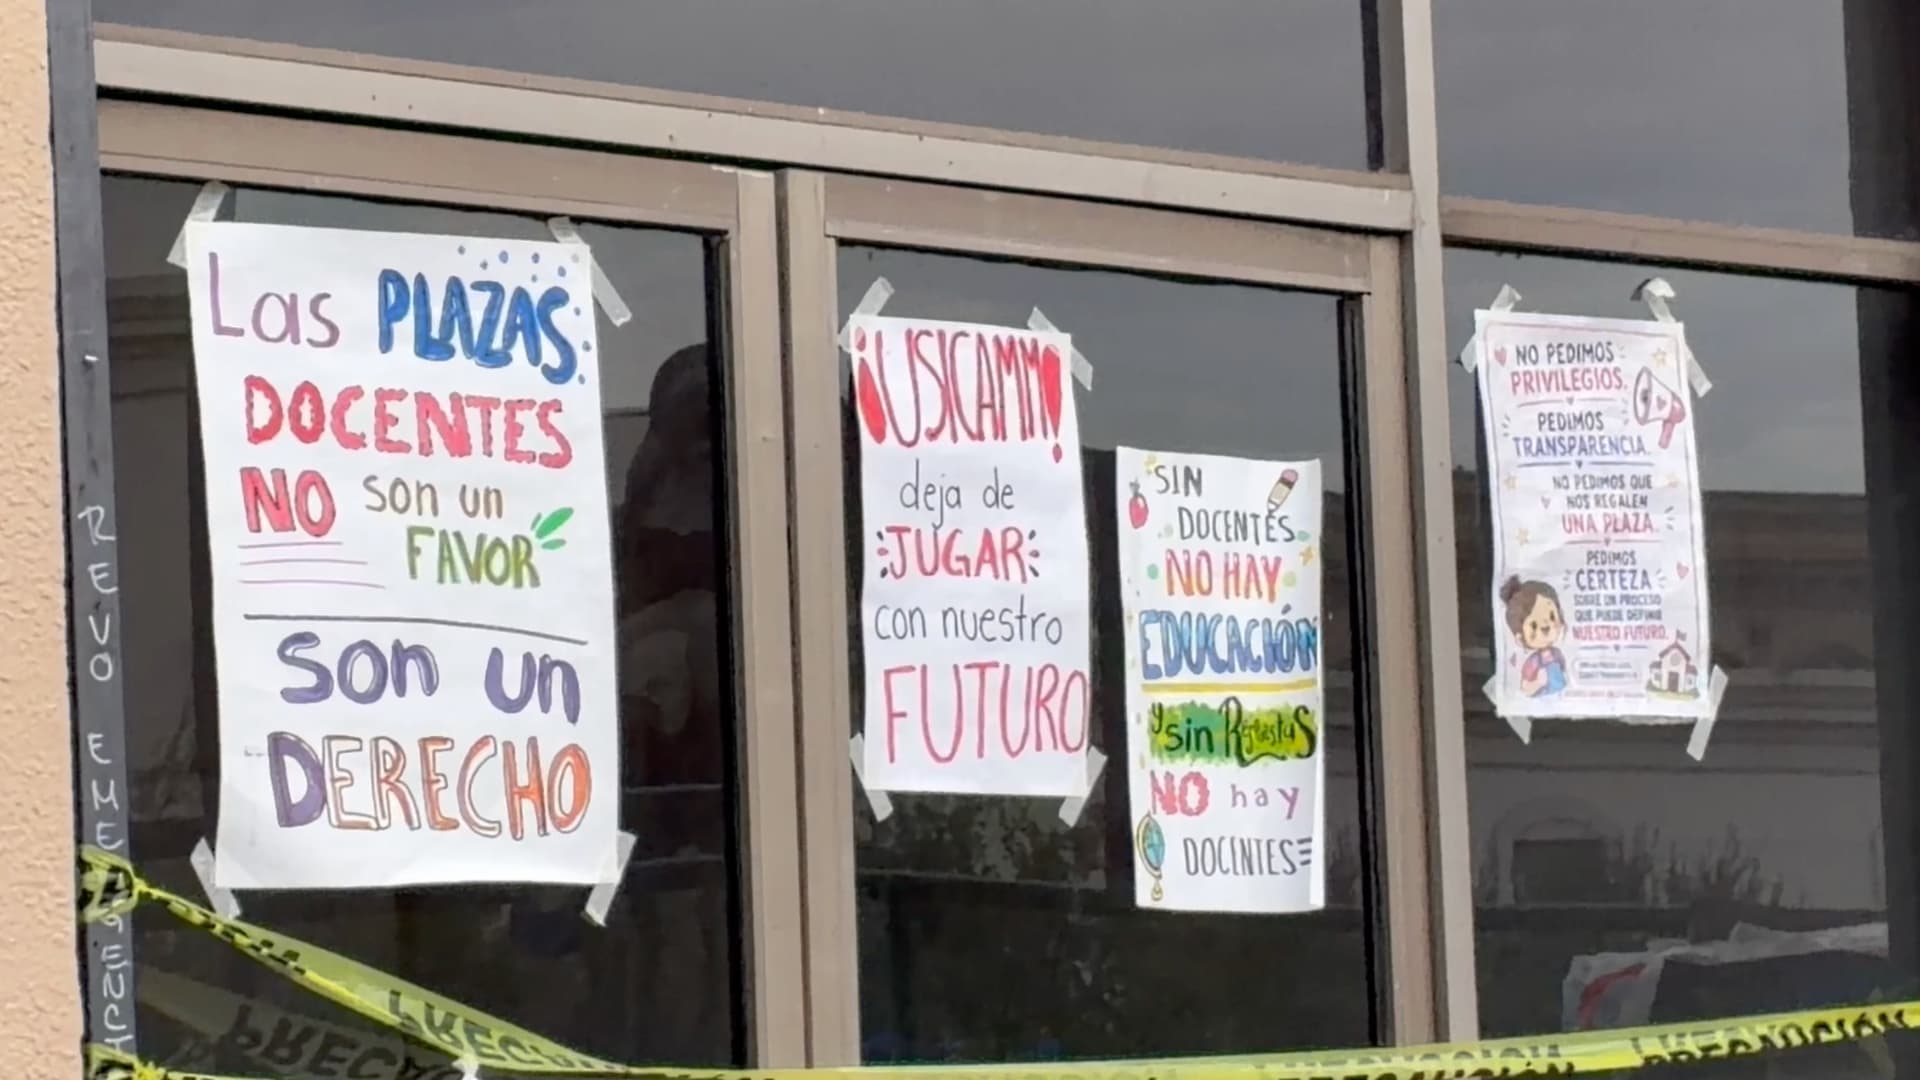 Las PLAZAS
DOCENTES
NO son un
FAVOR
son un
DERECHO
¡USICAMM!
deja de
JUGAR
con nuestro
FUTURO
SIN
DOCENTES
NO HAY
EDUCACIÓN
y sin RespuestaS
NO hay
DOCENTES
NO PEDIMOS
PRIVILEGIOS.
PEDIMOS
TRANSPARENCIA.
NO PEDIMOS QUE
NOS REGALEN
UNA PLAZA.
PEDIMOS
CERTEZA
SOBRE UN PROCESO
QUE PUEDE DEFINIR
NUESTRO FUTURO.
REVO EMERGENC
PRECAUCIÓN
PRECAUCIÓN
PRECAUCIÓN